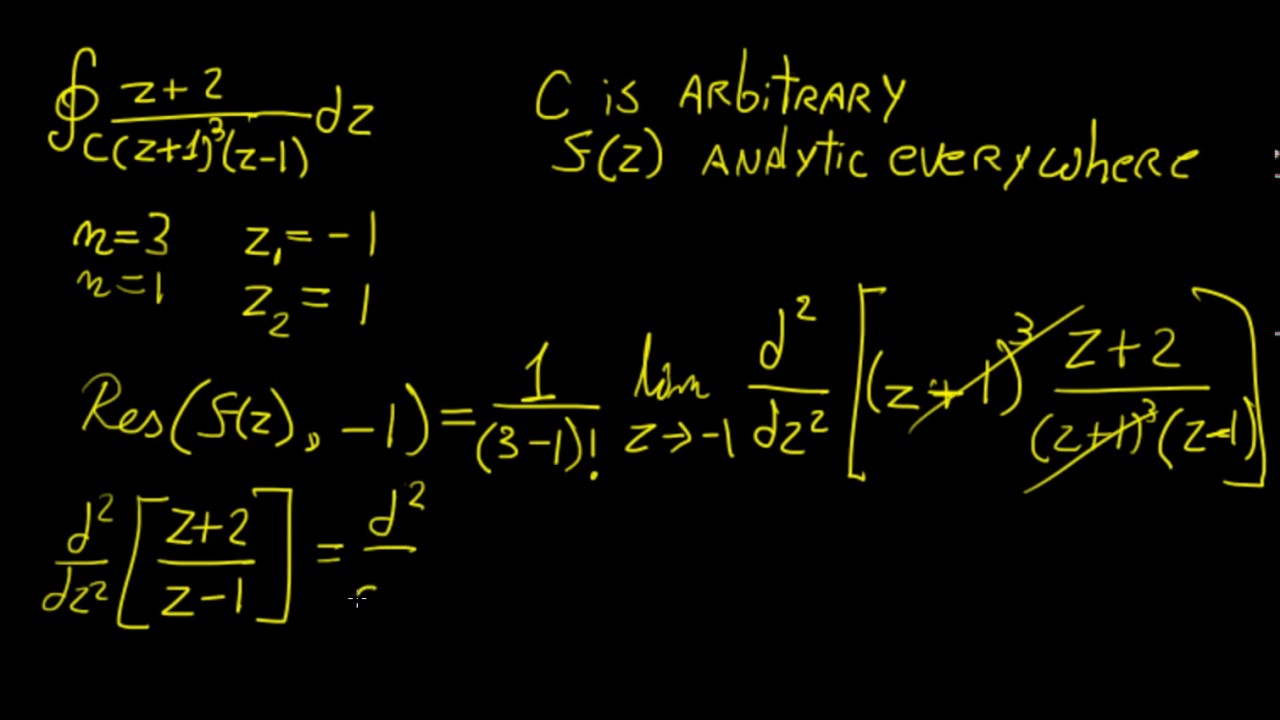 ∮_C (z+2)/((z+1)³(z-1)) dz
C is ARBITRARY
f(z) ANAlytic everywhere
n=3 z₁=-1
n=1 z₂=1
Res(f(z), -1) = 1/(3-1)! lim z→-1 d²/dz² [(z+1)³ (z+2)/((z+1)³(z-1))]
d²/dz² [(z+2)/(z-1)] = d²/